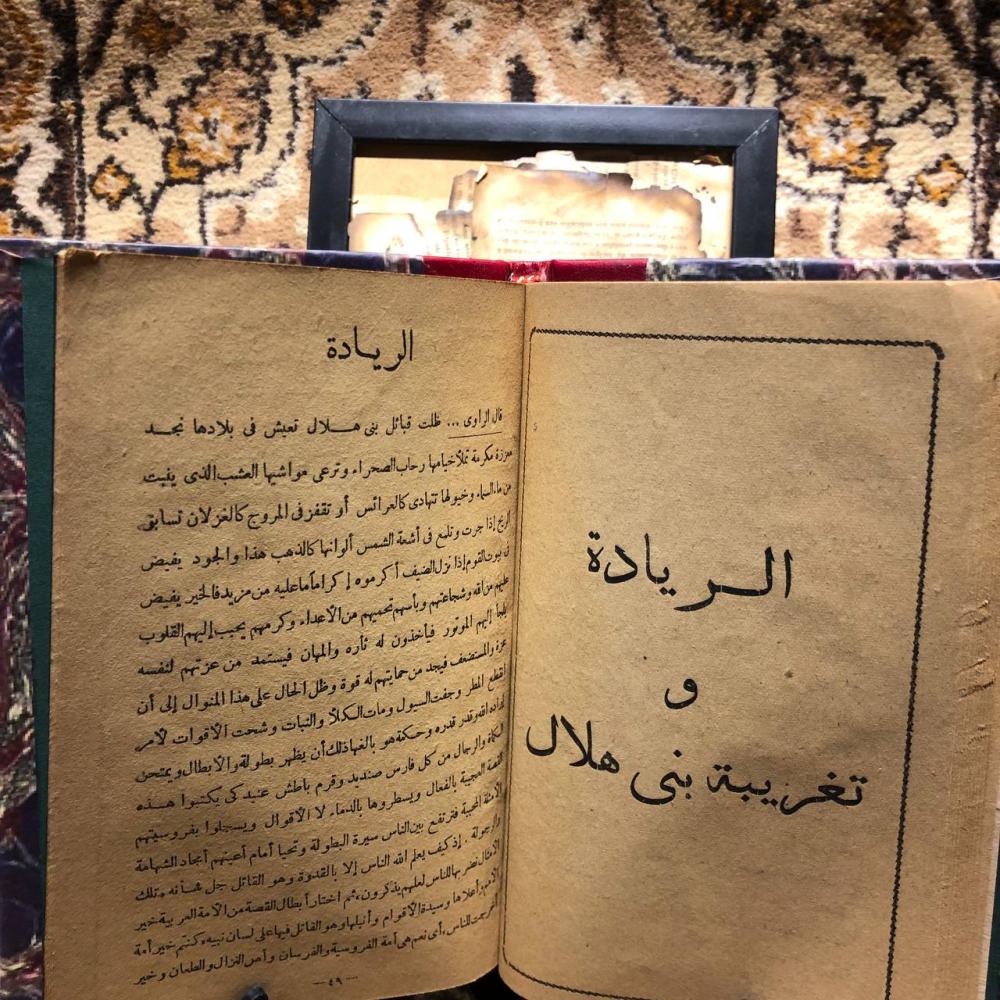 الريادة
و
تغريبة بنى هلال
الريادة
قال الراوى ... ظلت قبائل بنى هلال تعيش فى بلادها نجد
معززة مكرمة تملأ خيامها رحاب الصحراء وترعى مواشيها العشب الذى ينبت
من ماء السماء وخيولها تتهادى كالعرائس أو تقفز فى المروج كالغزلان تسابق
الريح إذا جرت وتلمع فى أشعة الشمس ألوانها كالذهب هذا والجود يفيض
فى بيوت القوم إذا نزل الضيف أكرموه إكراما ما عليه من مزيد فالخير يفيض
عليهم من الله وشجاعتهم وبأسهم تحميهم من الأعداء وكرمهم يحبب إليهم القلوب
يلجأ إليهم الموتور فيأخذون له ثأره والمهان فيستمد من عزتهم لنفسه
عزة والمستضعف فيجد من حمايتهم له قوة وظل الحال على هذا المنوال إلى أن
انقطع المطر وجفت السيول ومات الكلأ والنبات وشحت الأقوات لأمر
أراده الله وقدر قدره وحكمة هو بالغها ذلك أن يظهر بطولة والأبطال ويمتحن
الكماة والرجال من كل فارس صنديد وقرم باطش عنيد كى يكتبوا هذه
القصة العجيبة بالفعال ويسطروها بالدماء لا الأقوال ويسجلوا بفروسيتهم
الأمثلة المحببة فترتفع بين الناس سيرة البطولة وتحيا أمام أعينهم أمجاد الشهامة
والرجولة . إذ كيف يعلم الله الناس إلا بالقدوة وهو القائل جل شأنه «تلك
الأمثال نضربها للناس لعلهم يذكرون» ثم اختار أبطال القصة من الأمة العربية خير
الأمم وأعلاها وسيدة الأقوام وأنبلها وهو القائل فيها على لسان نبيه «كنتم خير أمة
أخرجت للناس» أى نعم هى أمة الفروسية والفرسان وأهل النزال والطعان وخير
— ٤٩ —